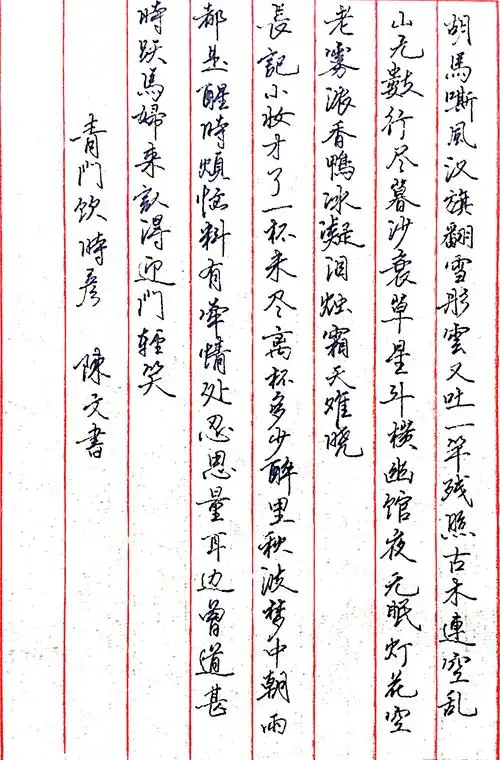 胡馬嘶風汉旗翻雪彤雲又吐一竿残照古木連空乱
山无數行尽暮沙衰草星斗横幽馆夜无眠灯花空
老雾浓香鴨冰凝泪烛霜天难晓
長記小妆才了一杯未尽离杯多少醉里秋波梦中朝雨
都是醒時煩恼料有牵情处忍思量耳边曾道甚
時跃馬歸来認得迎門輕笑
青門饮時彦 陳文書